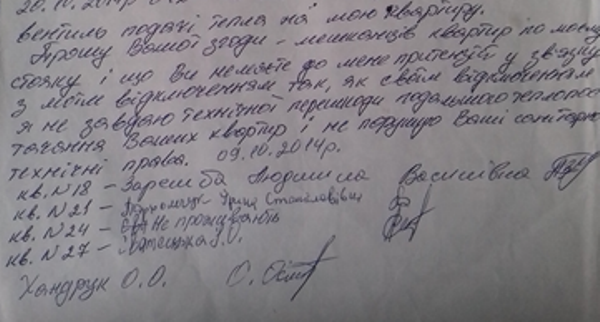 20.10.2014р
вентиль подачі тепла на мою квартиру.
Прошу Вашої згоди - мешканців квартир по моєму
стояку і що Ви не маєте до мене притензій у звязку
з моїм відключенням так, як своїм відключенням
я не завдаю технічної перешкоди подальшого теплопос-
тачання Ваших квартир і не порушую Ваші санітарно
технічні права. 09.10.2014р.
кв. N18 - Заремба Людмила Василівна
кв. N21 - Ірина Станіславівна
кв. N24 - Не проживають
кв. N27 - О.
Хандрук О.О.